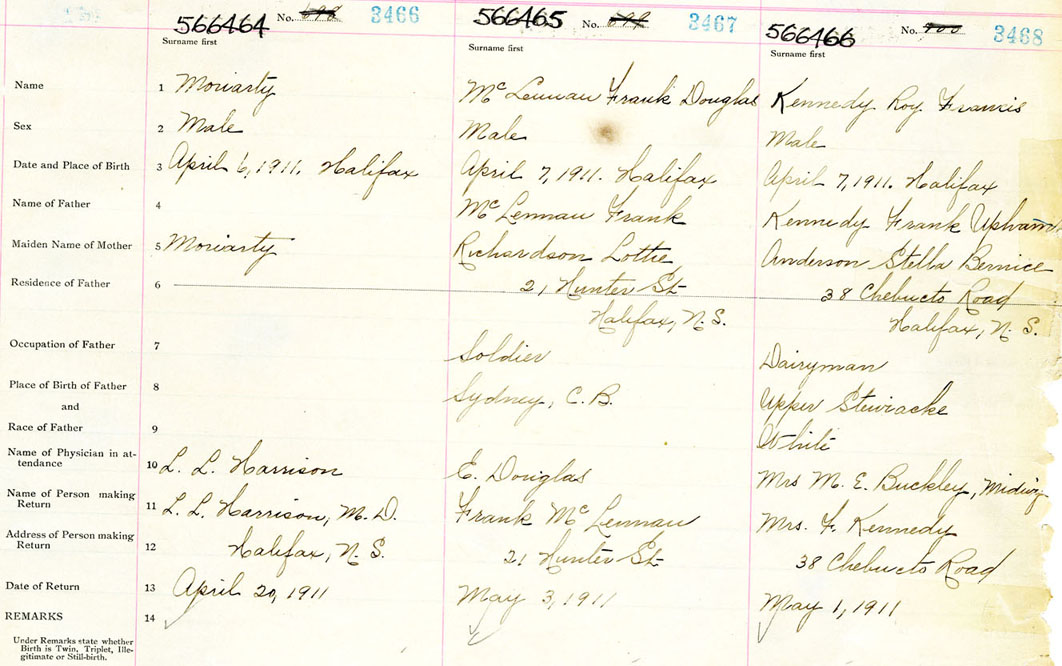 566464 No. 698 3466 566465 No. 699 3467 566466 No. 700 3468
Surname first Surname first Surname first
Name 1 Moriarty McLennan Frank Douglas Kennedy Roy Francis
Sex 2 Male Male Male
Date and Place of Birth 3 April 6, 1911. Halifax April 7, 1911. Halifax April 7, 1911. Halifax
Name of Father 4 McLennan Frank Kennedy Frank Upham
Maiden Name of Mother 5 Moriarty Richardson Lottie Anderson Stella Bernice
Residence of Father 6 21 Hunter St 38 Chebucto Road
Halifax, N.S. Halifax, N.S.
Occupation of Father 7 Soldier Dairyman
Place of Birth of Father 8 Sydney, C.B. Upper Stewiacke
and
Race of Father 9 White
Name of Physician in at-
tendance 10 L. L. Harrison E. Douglas Mrs M. E. Buckley, Midwife
Name of Person making
Return 11 L. L. Harrison, M.D. Frank McLennan Mrs. F. Kennedy
Address of Person making
Return 12 Halifax, N.S. 21 Hunter St 38 Chebucto Road
Date of Return 13 April 20, 1911 May 3, 1911 May 1, 1911
REMARKS 14
Under Remarks state whether
Birth is Twin, Triplet, Ille-
gitimate or Still-birth.